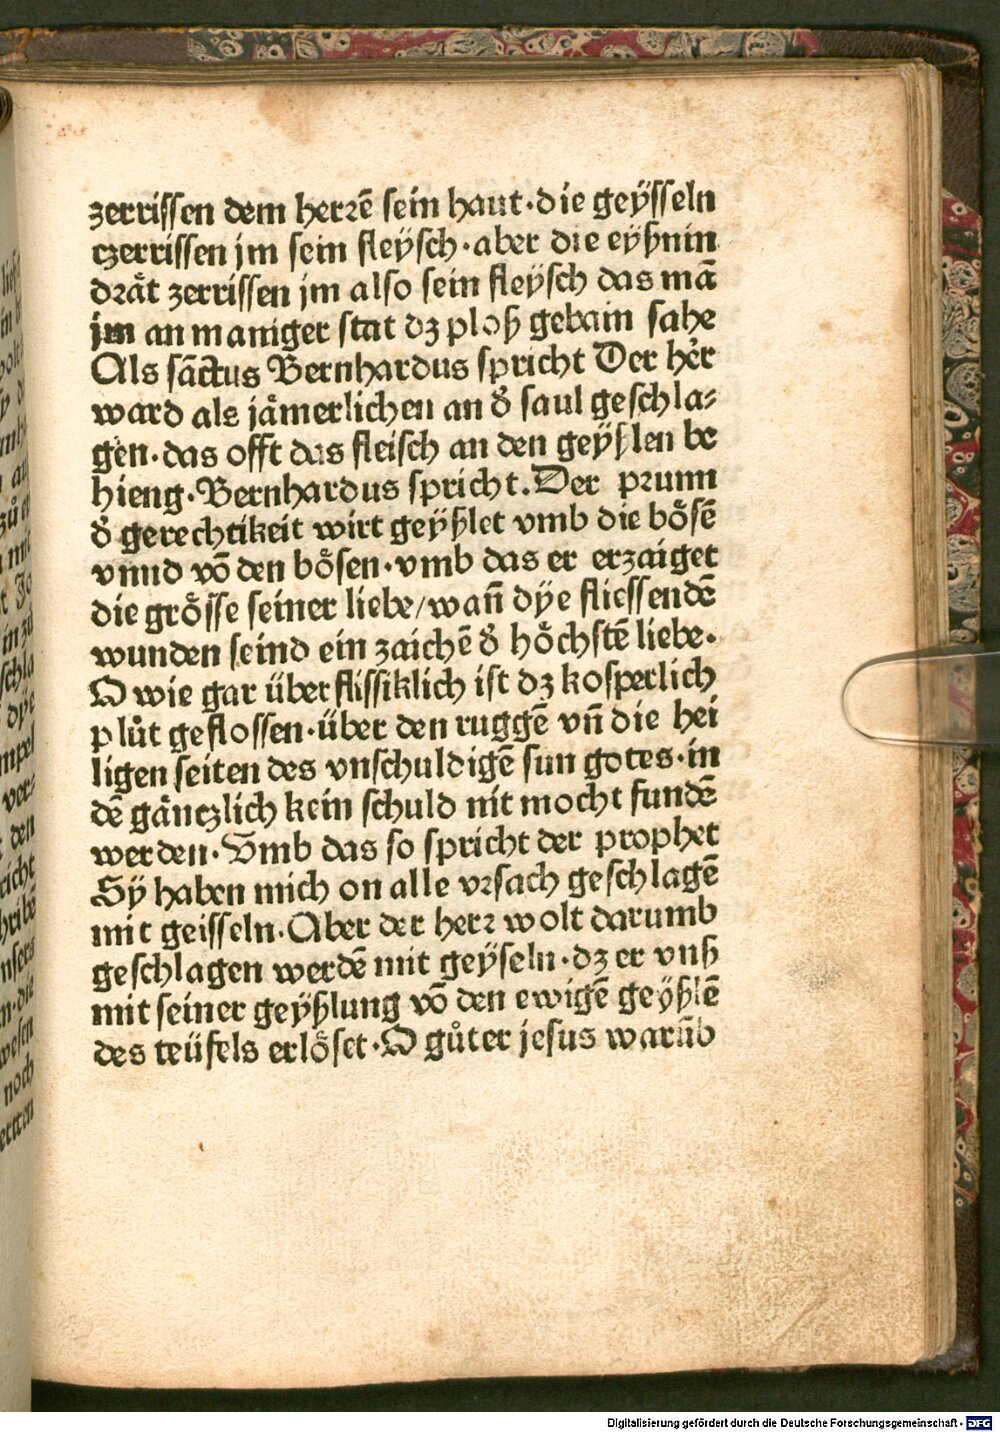 zerrissen dem herrē sein haut·die geÿsseln
czerrissen jm sein fleÿsch·aber die eÿßnin
drät zerrissen jm also sein fleÿsch das mā
jm an maniger stat dz ploß gebain sahe
Als sātus Bernhardus spricht Der her
ward als jämerlichen an d̕ saul geschla⸗
gen·das offt das fleisch an den geÿßlen be
hieng·Bernhardus spricht. Der prunn
d̕ gerechtikeit wirt geÿßlet vmb die bösē
vnnd vō den bösen·vmb das er erzaiget
die grösse seiner liebe/wañ dÿe fliessendē
wunden seind ein zaichē d̕ höchstē liebe·
O wie gar überflissiklich ist dz kosperlich
plůt geflossen·über den ruggē vñ die hei
ligen seiten des vnschuldigē sun gotes·in
dē gäntzlich kein schuld nit mocht fundē
werden·Vmb das so spricht der prophet
Sÿ haben mich on alle vrsach geschlagē
mit geisseln·Aber der herr wolt darumb
geschlagen werdē mit geÿseln·dz er vnß
mit seiner geÿßlung vō den ewigē geÿßlē
des teüfels erlöset·O gůter jesus warūb
Digitalisierung gefördert durch die Deutsche Forschungsgemeinschaft - DFG